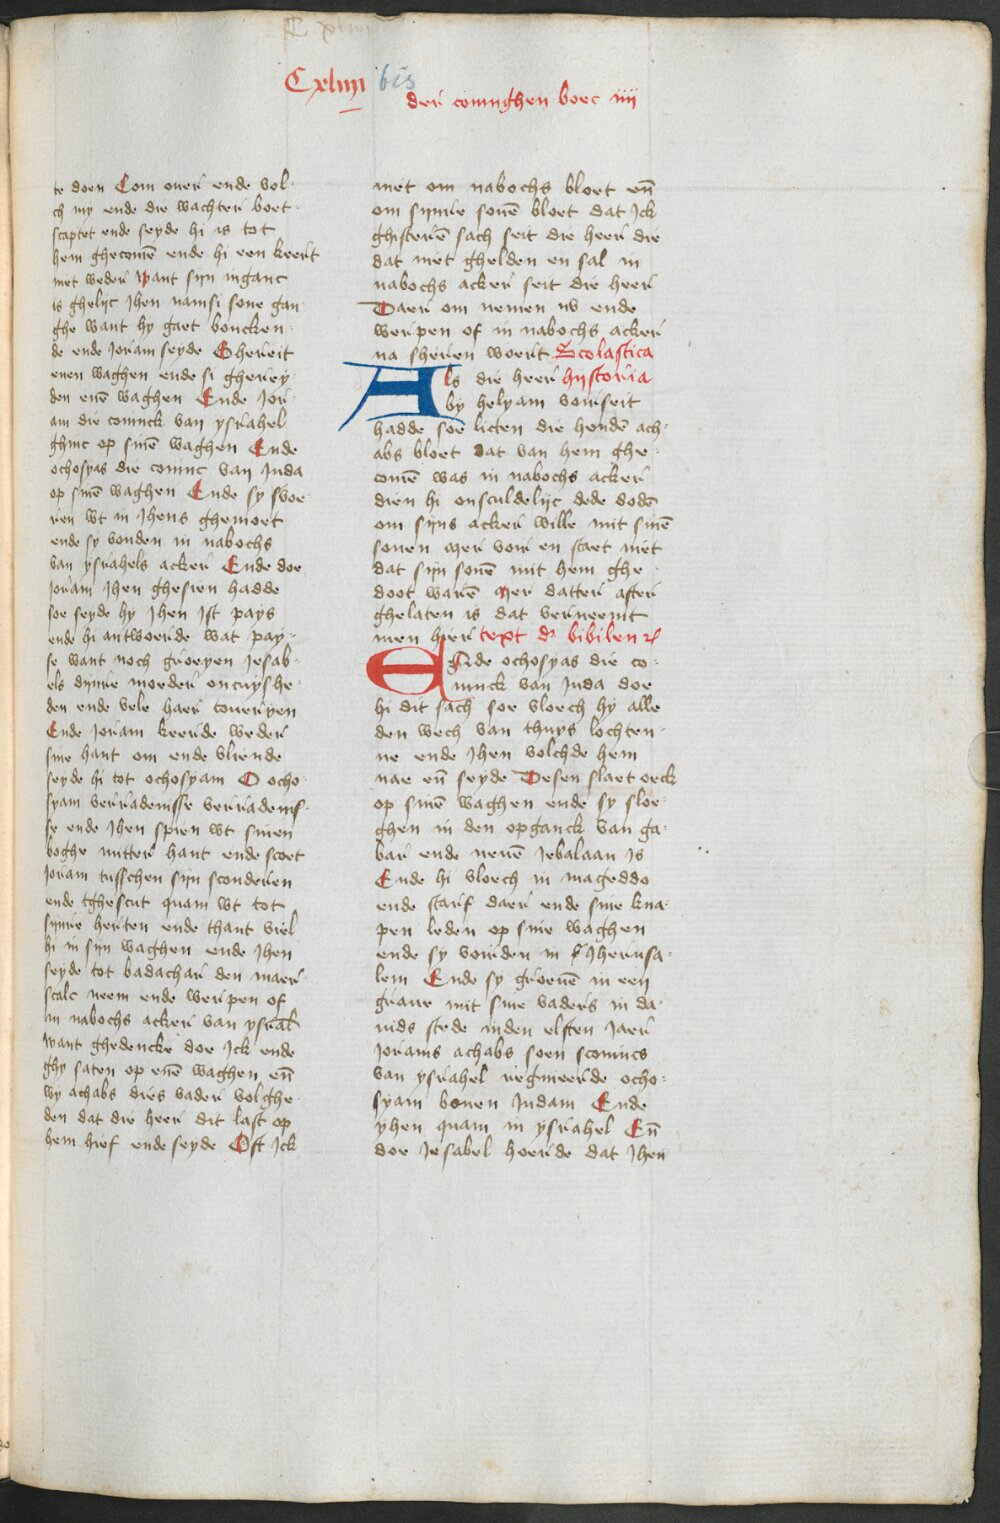 Cxliiij bis
der coninghen boec iiij
te doen Com ouer ende vol-
ch my ende die wachter boet-
scaptet ende seyde hi is tot
hem ghecomē ende hi een keert
niet weder want sijn inganc
is ghelijc Jhen namsi sone gan-
ghe want hy gaet boncken-
de ende Joram seyde Ghereit
enen waghen ende si gherey-
den enē waghen Ende Jor-
am die coninck van ysrahel
ghinc op sinē waghen Ende
ochosyas die coninc van Juda
op sinē waghen Ende sy voe-
ren wt in Jhens ghemoet
ende sy vonden in nabochs
van ysrahels acker Ende doe
Joram Jhen ghesien hadde
soe seyde hy Jhen Ist pays
ende hi antwoerde wat pay-
se want noch groeyen Jesab-
els dijnre moeder oncuyshe-
den ende vele haer toueryen
Ende Joram keerde weder
sine hant om ende vliende
seyde hi tot ochosyam O ocho-
syam verradenisse verradenis-
se ende Jhen spien wt sinen
boghe mitter hant ende scoet
Joram tusschen sijn scouderen
ende tghescut quam wt tot
sijnre herten ende thant viel
hi in sijn waghen ende Jhen
seyde tot badachar den maer-
scalc neem ende werpen of
in nabochs acker van ysral̄
want ghedencke doe Jck ende
ghy saten op enē waghen en̄
wy achabs dies vader volghe-
den dat die heer dit last op
hem hief ende seyde Oft Jck
niet om nabochs bloet en̄
om sijnre sonē bloet dat Jck
ghisterē sach seit die heer die
dat niet ghelden en sal in
nabochs acker seit die heer
Daer om nemen nv ende
werpen of in nabochs acker
na sheren woert Scolastica
Als die heer hystoria
by helyam voirseit
hadde soe licten die honden ach-
abs bloet dat van hem ghe-
comē was in nabochs acker
dien hi onsculdelijc dede dodē
om sijns acker wille mit sinē
sonen Mer voir en staet niet
dat sijn sonē mit hem ghe-
doot warē Mer datter after
ghelaten is dat verneemt
men hier text d' bibilen
Ende ochosyas die co-
ninck van Juda doe
hi dit sach soe vloech hy alle
den wech van thuys lochten-
ne ende Jhen volchde hem
nae en̄ seyde Desen slaet oeck
op sinē waghen ende sy sloe-
ghen in den opganck van ga-
bar ende neuē Jebalaan Js
Ende hi vloech in mageddo
ende starf daer ende sine kna-
pen leden op sine waghen
ende sy voirden in Jherusa-
lem Ende sy groeuē in een
graue mit sine vaders in da-
uids stede inden elften Jaer
Jorams achabs soen sconincs
van ysrahel regneerde ocho-
syam bouen Judam Ende
yhen quam in ysrahel En̄
doe Jesabel hoerde dat Jhen